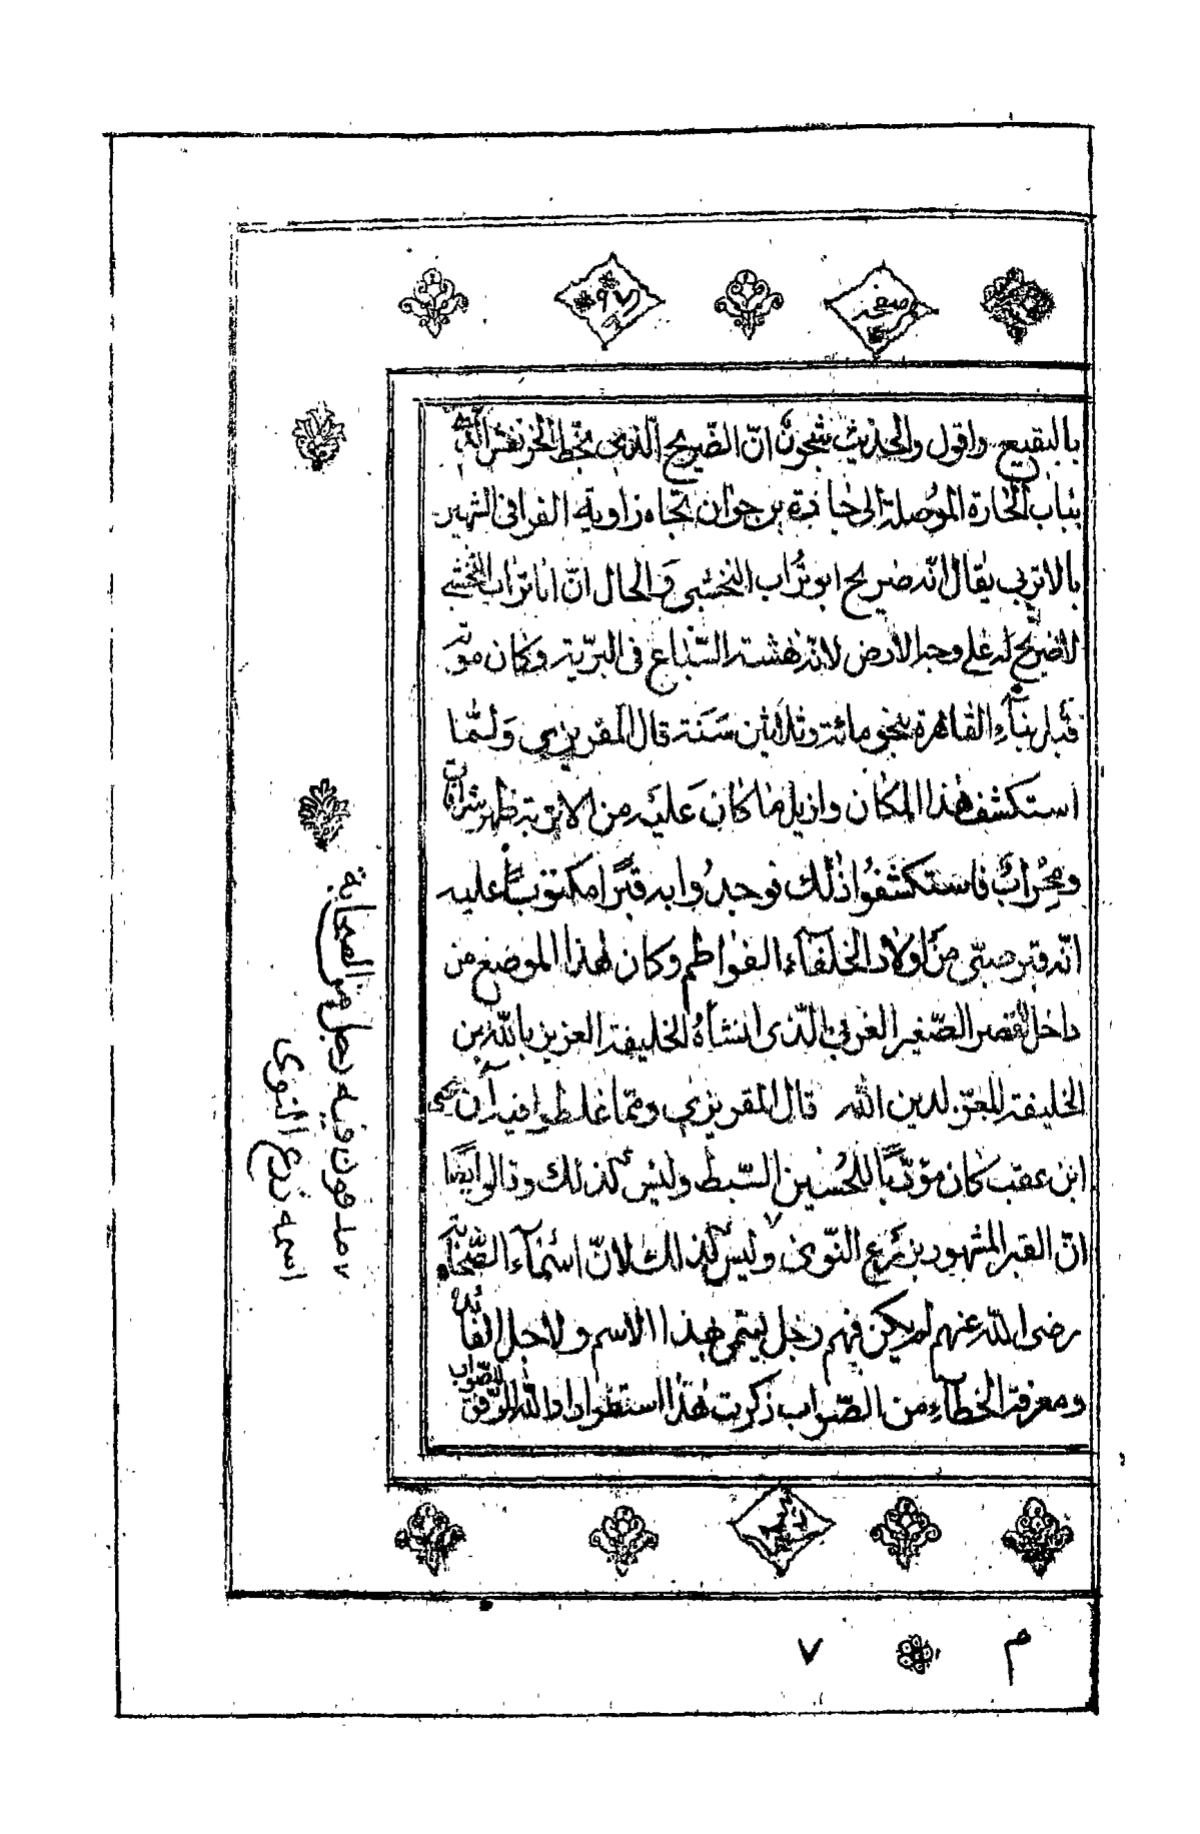 صفحة
٩٧
بالبقيع واقول والحديث شجون انّ الضّريح الّذي بخط الخرنفش الّذي
بباب الحارة الموُصلة الى حارة برجوان تجاه زاوية القرافى الشهير
بالاتربى يقال انّه ضريح ابو تُراب النخشبى وَالحال انّ ابا تراب النخشبي
لا ضريح له على وجه الارض لانّه نهشته السّباع فى البرّية وكان موته
قبل بنآءِ القاهرة بنحو مائة وثلاثين سَنة قال المقريزي وَلمّا
استكشف هذا المكان وازيل ما كان عَليَه من الاتربة ظهر شرافات
ومِحْرابٌ فاسَتكشفُوا ذلك فوجدُوا به قبرًا مكتوبًا عليه
انّه قبر صبّى من اولاد الخلفآءِ الفواطم وكان هذا الموضع من
داخل القصر الصّغير الغربي الّذى انشأهُ الخليفة العزيز بالله بن
الخليفة المعزّ لدين الله قال المقريزي وممّا غلطوا فيه أن
ابن عقب كان مؤدّبًا للحُسين السّبط وليسَ كذلك وقالوا ايضًا
انّ القبر المشهور بزرع النّوى وليس كذالك لانّ اسْمآء الصّحابة
رضى الله عنهم لم يكن فيهم رجل يسمى بهذا الاسم ولاجل الفائدة
ومعرفة الخطآءِ من الصّواب ذكرت هذا استطرادا والله الموّفق للصّواب
٧ مدفون فيه رجل من الصحابة
اسمه زرع النوى
م ٧